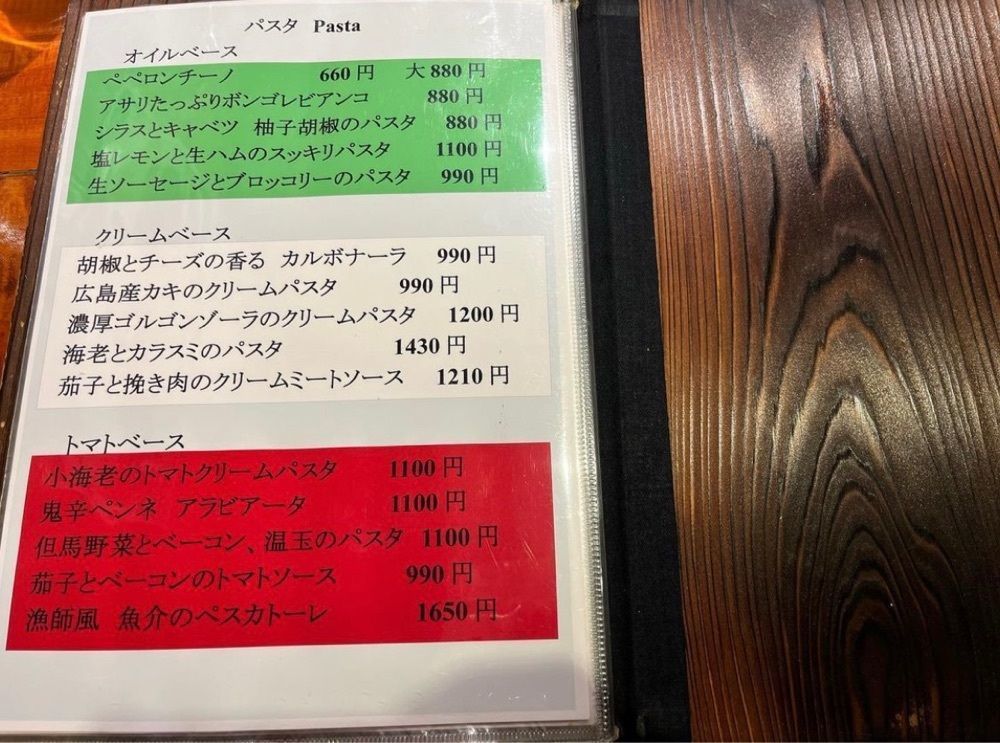 パスタ Pasta
オイルベース
ペペロンチーノ 660円 大880円
アサリたっぷりボンゴレビアンコ 880円
シラスとキャベツ 柚子胡椒のパスタ 880円
塩レモンと生ハムのスッキリパスタ 1100円
生ソーセージとブロッコリーのパスタ 990円
クリームベース
胡椒とチーズの香る カルボナーラ 990円
広島産カキのクリームパスタ 990円
濃厚ゴルゴンゾーラのクリームパスタ 1200円
海老とカラスミのパスタ 1430円
茄子と挽き肉のクリームミートソース 1210円
トマトベース
小海老のトマトクリームパスタ 1100円
鬼辛ペンネ アラビアータ 1100円
但馬野菜とベーコン、温玉のパスタ 1100円
茄子とベーコンのトマトソース 990円
漁師風 魚介のペスカトーレ 1650円